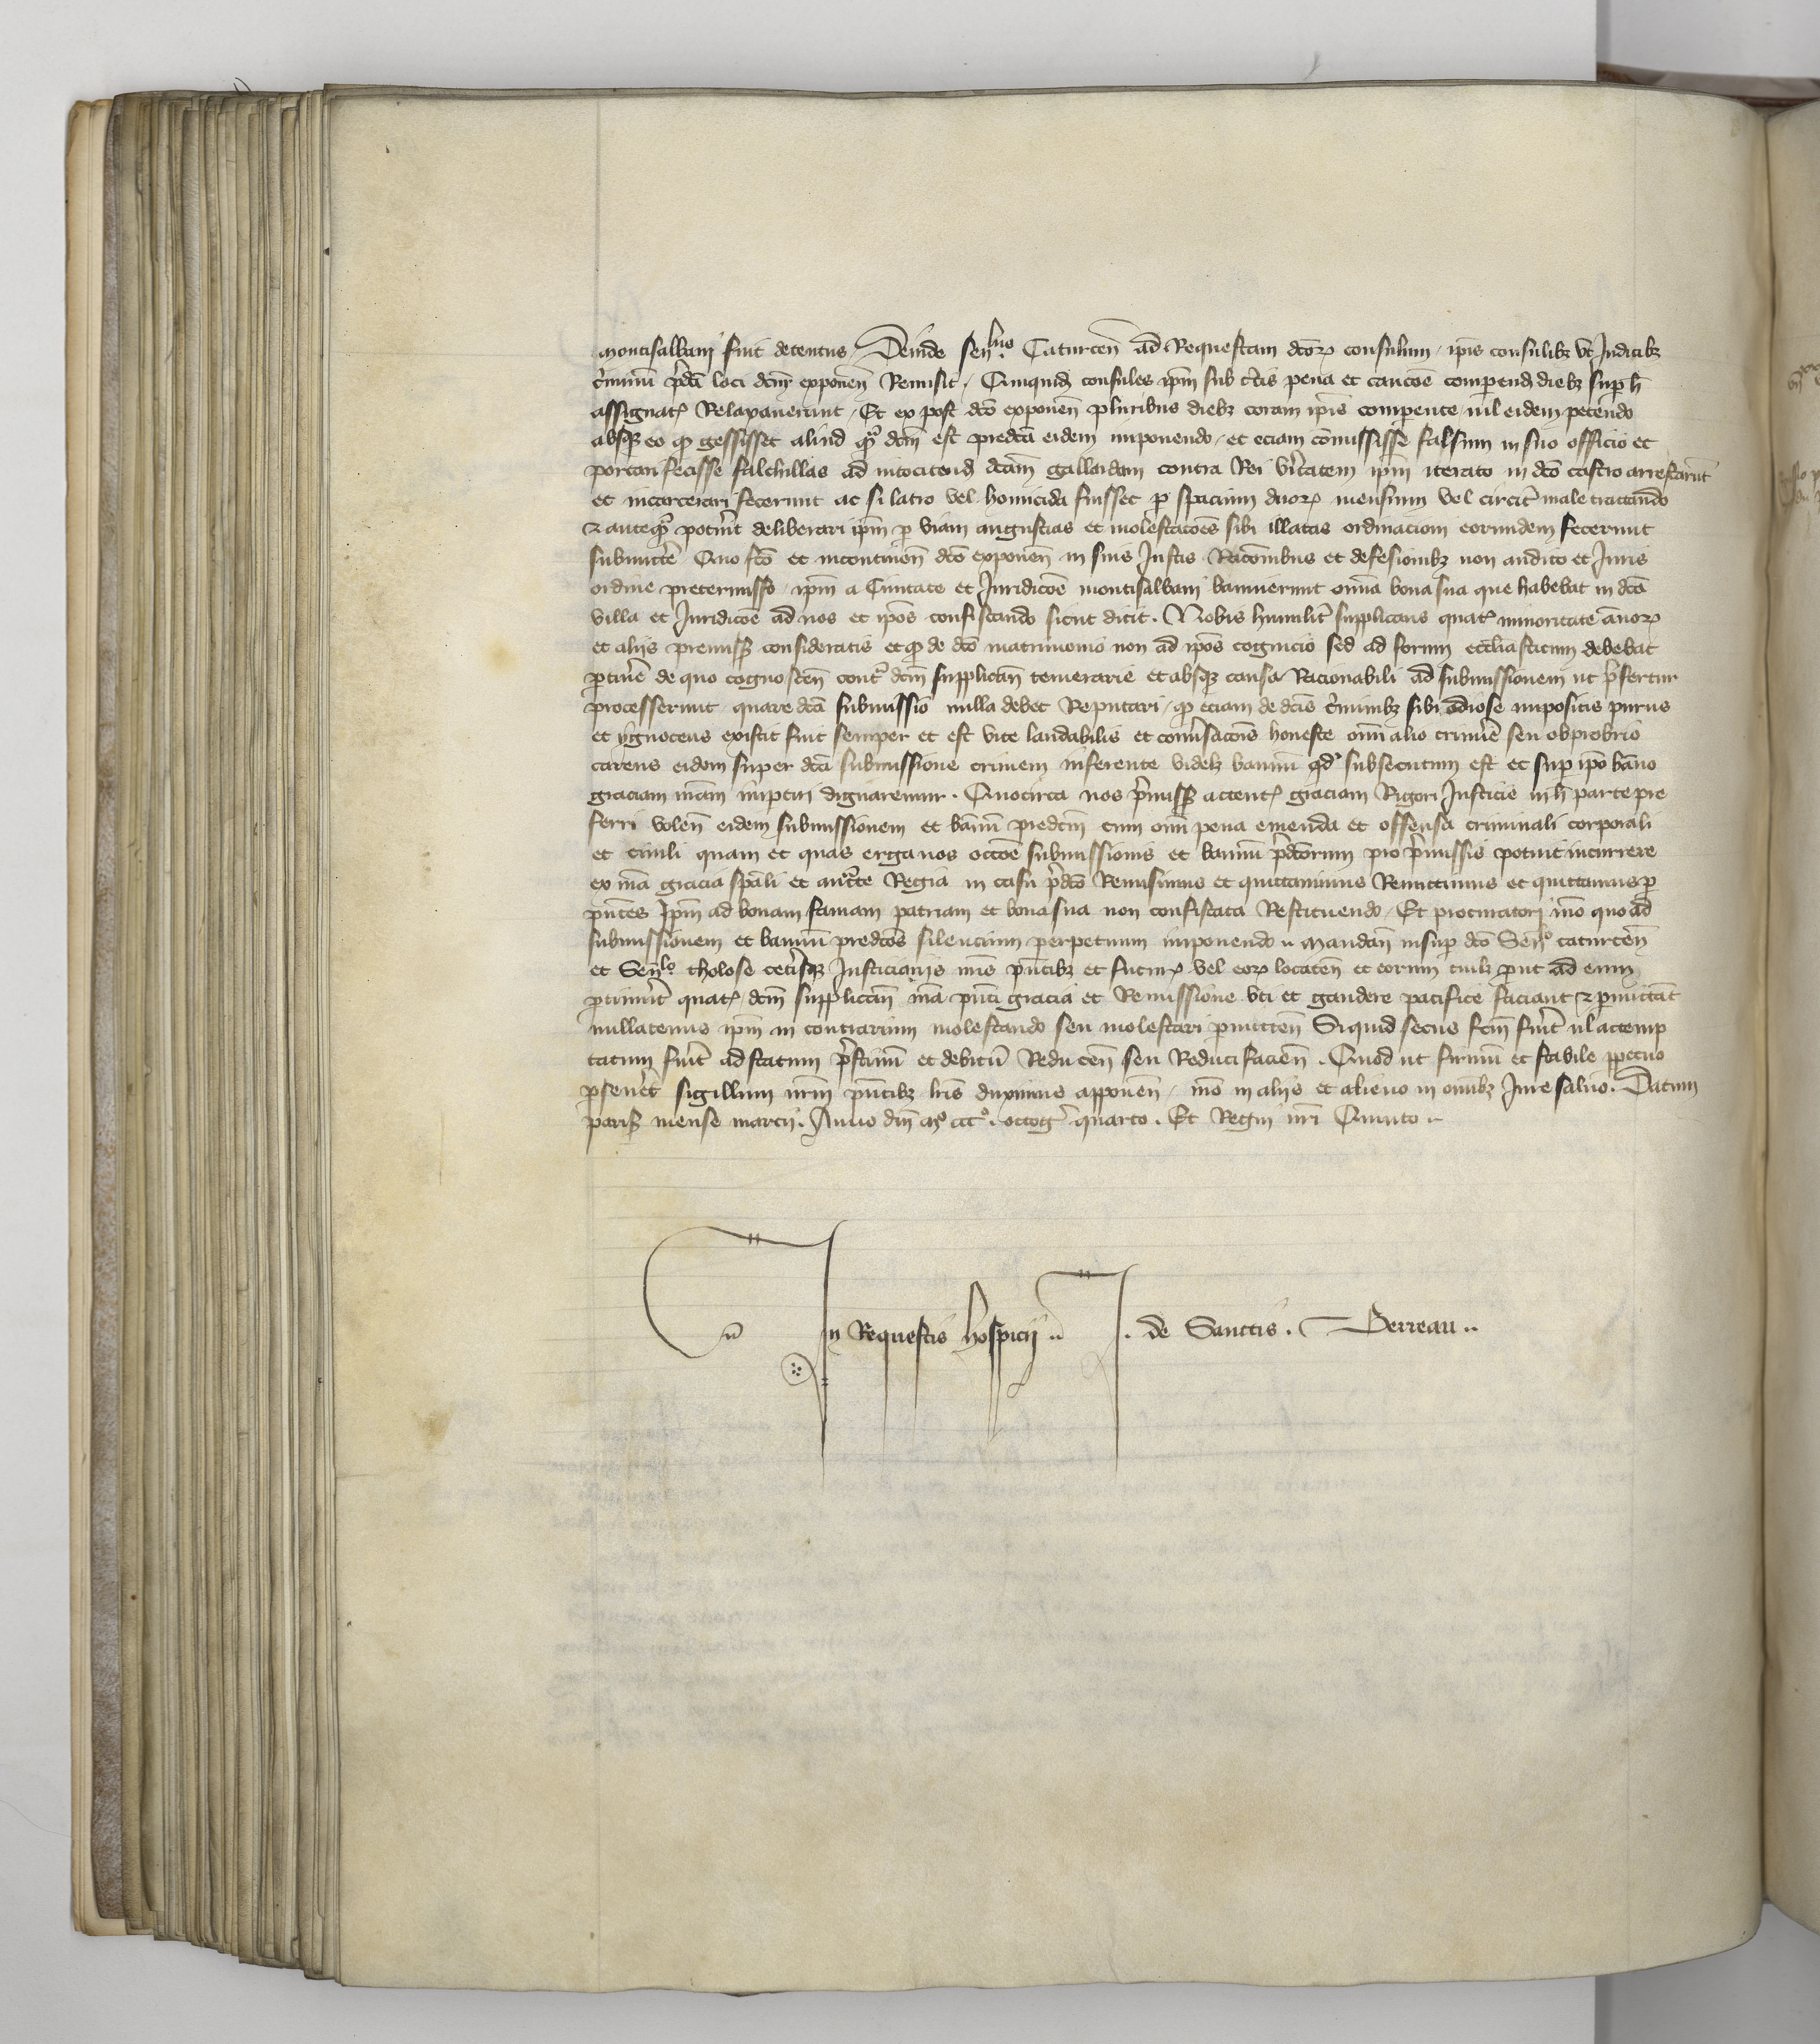 montisalbani fuit detentus, Deinde sen̄lus Caturceñ ad Requestam dc̄oꝝ consulum, ip̄is consulibȝ vt Judicibȝ
c̓iminū p̄dc̄i loci dc̄m exponeñ Remisit, Quiquidȝ consules ip̄m sub c̓tis pena et caucōe comparend̄ diebȝ suꝑ h̄
assignatꝭ Relaxauerunt, Et ex post dc̄o exponeñ pluribus diebȝ coram ip̄is comparente, nil eidem petendo
absqȝ eo qꝫ gessisset aliud qᵃ dc̄m est predc̄a eidem imponendo, et eciam cōmississe falsum in suo officio et
portari fecisse falchillas ad intocitend̄ dc̄am gallardam contra Rei v̓itatem ip̄m iterato in dc̄o castro arrestar̄ūt
et incarcerari fecerunt ac si latro vel homicida fuisset ꝑ spacium duoꝝ mensium vel circit̓ male tractando
⁊ anteqᵃ potuīt deliberari ip̄m ꝑ viam angustias et molestacōes sibi illatas ordinacioni eorumdem fecerunt
submitt̓e Quo fc̄o et incontineñ dc̄o exponeñ in suis Justis Racōnibus et defesionibȝ non audito et Juris
ordine pretermisso, ip̄m a Ciuitate et Juridicōe montisalbani bannierunt om̄ia bona sua que habebat in dc̄a
villa et Juridicōe ad nos et ip̄os confiscando sicut dicit. Nobis humilit̓ supplicans quatꝭ minoritate ānoꝝ
et alijs premissꝭ consideratis et qꝫ de dc̄o matrimonio non ad ip̄os cognicio sed ad forum eccl̄iasticum debebat
ꝑtin̓e de quo cognosceñ contᵃ dc̄m supplicañ temerarie et absqȝ causa Racionabili ad submissionem ut p̄fertur
processerunt, quare dc̄a submissio nulla debet Reputari, qꝫ eciam de dc̄is c̓iminibȝ sibi odiose impositis purus
et ygnocens existit fuit semper et est vite laudabilis et conu̓sacōis honeste om̄i alio crimīe seu obprobrio
carens eidem super dc̄a submissione crimen inferente videlȝ bannū qd̓ subsecutum est et suꝑ ip̄o bāno
graciam nr̄am imptiri dignaremur. Quocirca nos p̄missꝭ actentꝭ graciam Rigori Justicie in h̄ parte pre
ferri voleñ eidem submissionem et bannū predc̄m cum om̄i pena emenda et offensa criminali corporali
et ciuili quam et quas erga nos occōe submissionis et bannū p̄dc̄orum pro p̄missis potuit incurrere
ex nr̄a gracia sp̄ali et auctᵗᵉ Regia in casu p̄dc̄o Remisimus et quittauimus Remittimus et quittamus ꝑ
p̄ntes Ip̄m ad bonam famam patriam et bona sua non confiscata Restituendo, Et procuratori nr̄o quo ad
submissionem et bannū predc̄os silencium perpetuum imponendo .. Mandañ insuꝑ dc̄o Sen̄lo caturceñ
et Sen̄lo tholose cet̓isqȝ Justiciarijs nr̄is p̄ntibȝ et futurꝭ vel eoꝝ locateñ et eorum cuilȝ prout ad eum
ꝑtinuīt quatꝭ dc̄m supplicañ nr̄a p̄nti gracia et Remissione vti et gaudere pacifice faciant ⁊ ꝑmittāt
nullatenus ip̄m in contrarium molestando seu molestari ꝑmitteñ Siquid secus fc̄m fu̓it ul̄ actemp
tatum fu̓it ad statum p̄stinū et debitū Reduceñ seu Reduci facieñ. Quod ut firmū et stabile ꝑpetuo
ꝑseueret sigillum nr̄m p̄ntibȝ lr̄is duximus apponeñ, nr̄o in alijs et alieno in omībȝ Jure saluo. Datum
parisꝭ mense marcij. Anno dn̄i mº cccº. octogº quarto. Et Regni nr̄i Quinto ..
In Requestis hospicij .. J. de Sanctis. Derreau ..